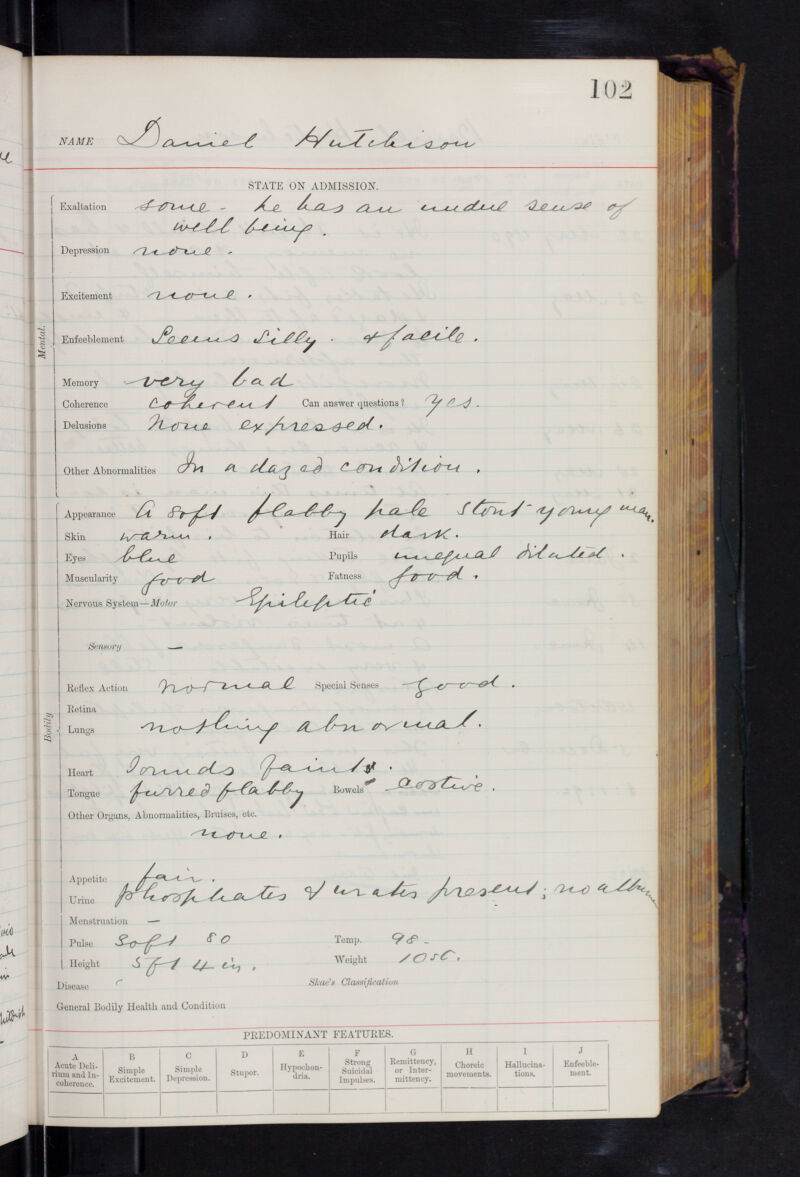 102
NAME Daniel Hutchison
STATE ON ADMISSION.
Mental.
Exaltation some - he has an undue sense of
well being.
Depression none.
Excitement none.
Enfeeblement Seems silly. & facile.
Memory very bad
Coherence coherent Can answer questions? yes.
Delusions None expressed.
Other Abnormalities In a dazed condition.
Bodily
Appearance A soft flabby pale stout young man.
Skin warm. Hair dark.
Eyes blue Pupils unequal dilated.
Muscularity good Fatness good.
Nervous System—Motor Epileptic
Sensory —
Reflex Action normal Special Senses good.
Retina
Lungs nothing abnormal.
Heart Sounds faint.
Tongue furred flabby Bowels costive.
Other Organs, Abnormalities, Bruises, etc.
none.
Appetite fair.
Urine phosphates & urates present; no
Menstruation —
Pulse Soft 80 Temp. 98.
Height 5 ft 4 in. Weight
Disease Skae's Classification
General Bodily Health and Condition
PREDOMINANT FEATURES.
A B C D E F G H I J
Acute Delirium and Incoherence. Simple Excitement. Simple Depression. Stupor. Hypochondria. Strong Suicidal Impulses. Remittency, or Intermittency. Choreic movements. Hallucinations. Enfeeblement.